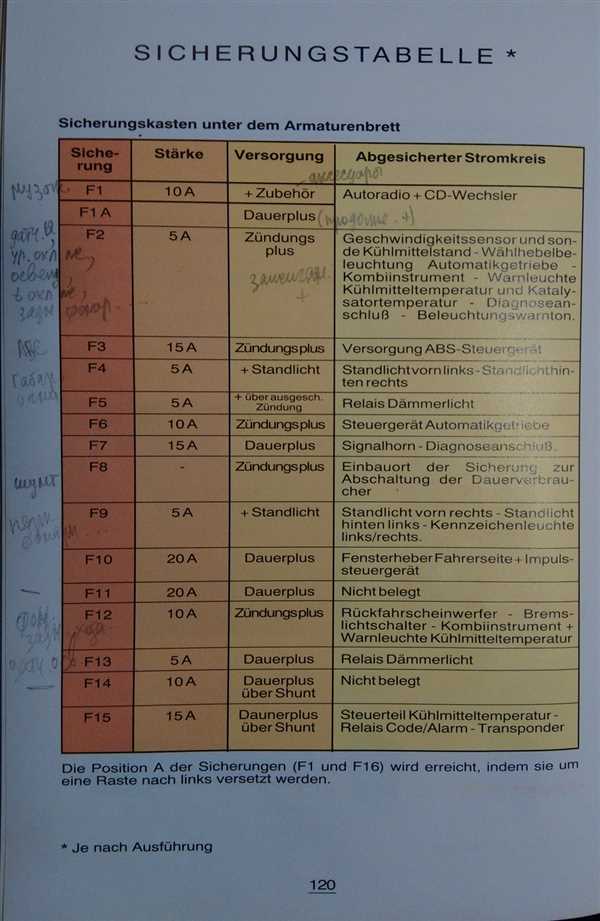 SICHERUNGSTABELLE *
Sicherungskasten unter dem Armaturenbrett
Siche-
rung
Stärke
Versorgung
Abgesicherter Stromkreis
аксесуары
F1
10 A
+ Zubehör
Autoradio + CD-Wechsler
F1 A
Dauerplus
F2
5 A
Zündungs
plus
Geschwindigkeitssensor und son-
de Kühlmittelstand - Wählhebelbe-
leuchtung Automatikgetriebe -
Kombiinstrument - Warnleuchte
Kühlmitteltemperatur und Kataly-
satortemperatur - Diagnosean-
schluß - Beleuchtungswarnton.
F3
15 A
Zündungsplus
Versorgung ABS-Steuergerät
F4
5 A
+ Standlicht
Standlicht vorn links - Standlicht hin-
ten rechts
F5
5 A
+ über ausgesch.
Zündung
Relais Dämmerlicht
F6
10 A
Zündungsplus
Steuergerät Automatikgetriebe
F7
15 A
Dauerplus
Signalhorn - Diagnoseanschluß.
F8
-
Zündungsplus
Einbauort der Sicherung zur
Abschaltung der Dauerverbrau-
cher
F9
5 A
+ Standlicht
Standlicht vorn rechts - Standlicht
hinten links - Kennzeichenleuchte
links/rechts.
F10
20 A
Dauerplus
Fensterheber Fahrerseite + Impuls-
steuergerät
F11
20 A
Dauerplus
Nicht belegt
F12
10 A
Zündungsplus
Rückfahrscheinwerfer - Brems-
lichtschalter - Kombiinstrument +
Warnleuchte Kühlmitteltemperatur
F13
5 A
Dauerplus
Relais Dämmerlicht
F14
10 A
Dauerplus
über Shunt
Nicht belegt
F15
15 A
Daunerplus
über Shunt
Steuerteil Kühlmitteltemperatur -
Relais Code/Alarm - Transponder
Die Position A der Sicherungen (F1 und F16) wird erreicht, indem sie um
eine Raste nach links versetzt werden.
* Je nach Ausführung
120